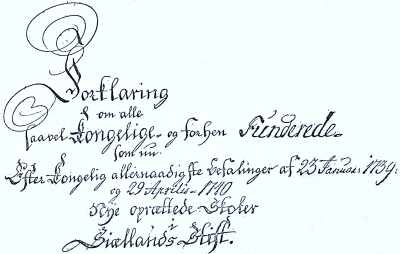 Forklaring
om alle
saavel Kongelige- og forhen Funderede-
som nu
Efter Kongelig allernaadigste Befalinger af 23 Januar: 1739:
og 29 Aprilis- 1740
Nye oprættede Skoler
i
Siællands Stift.